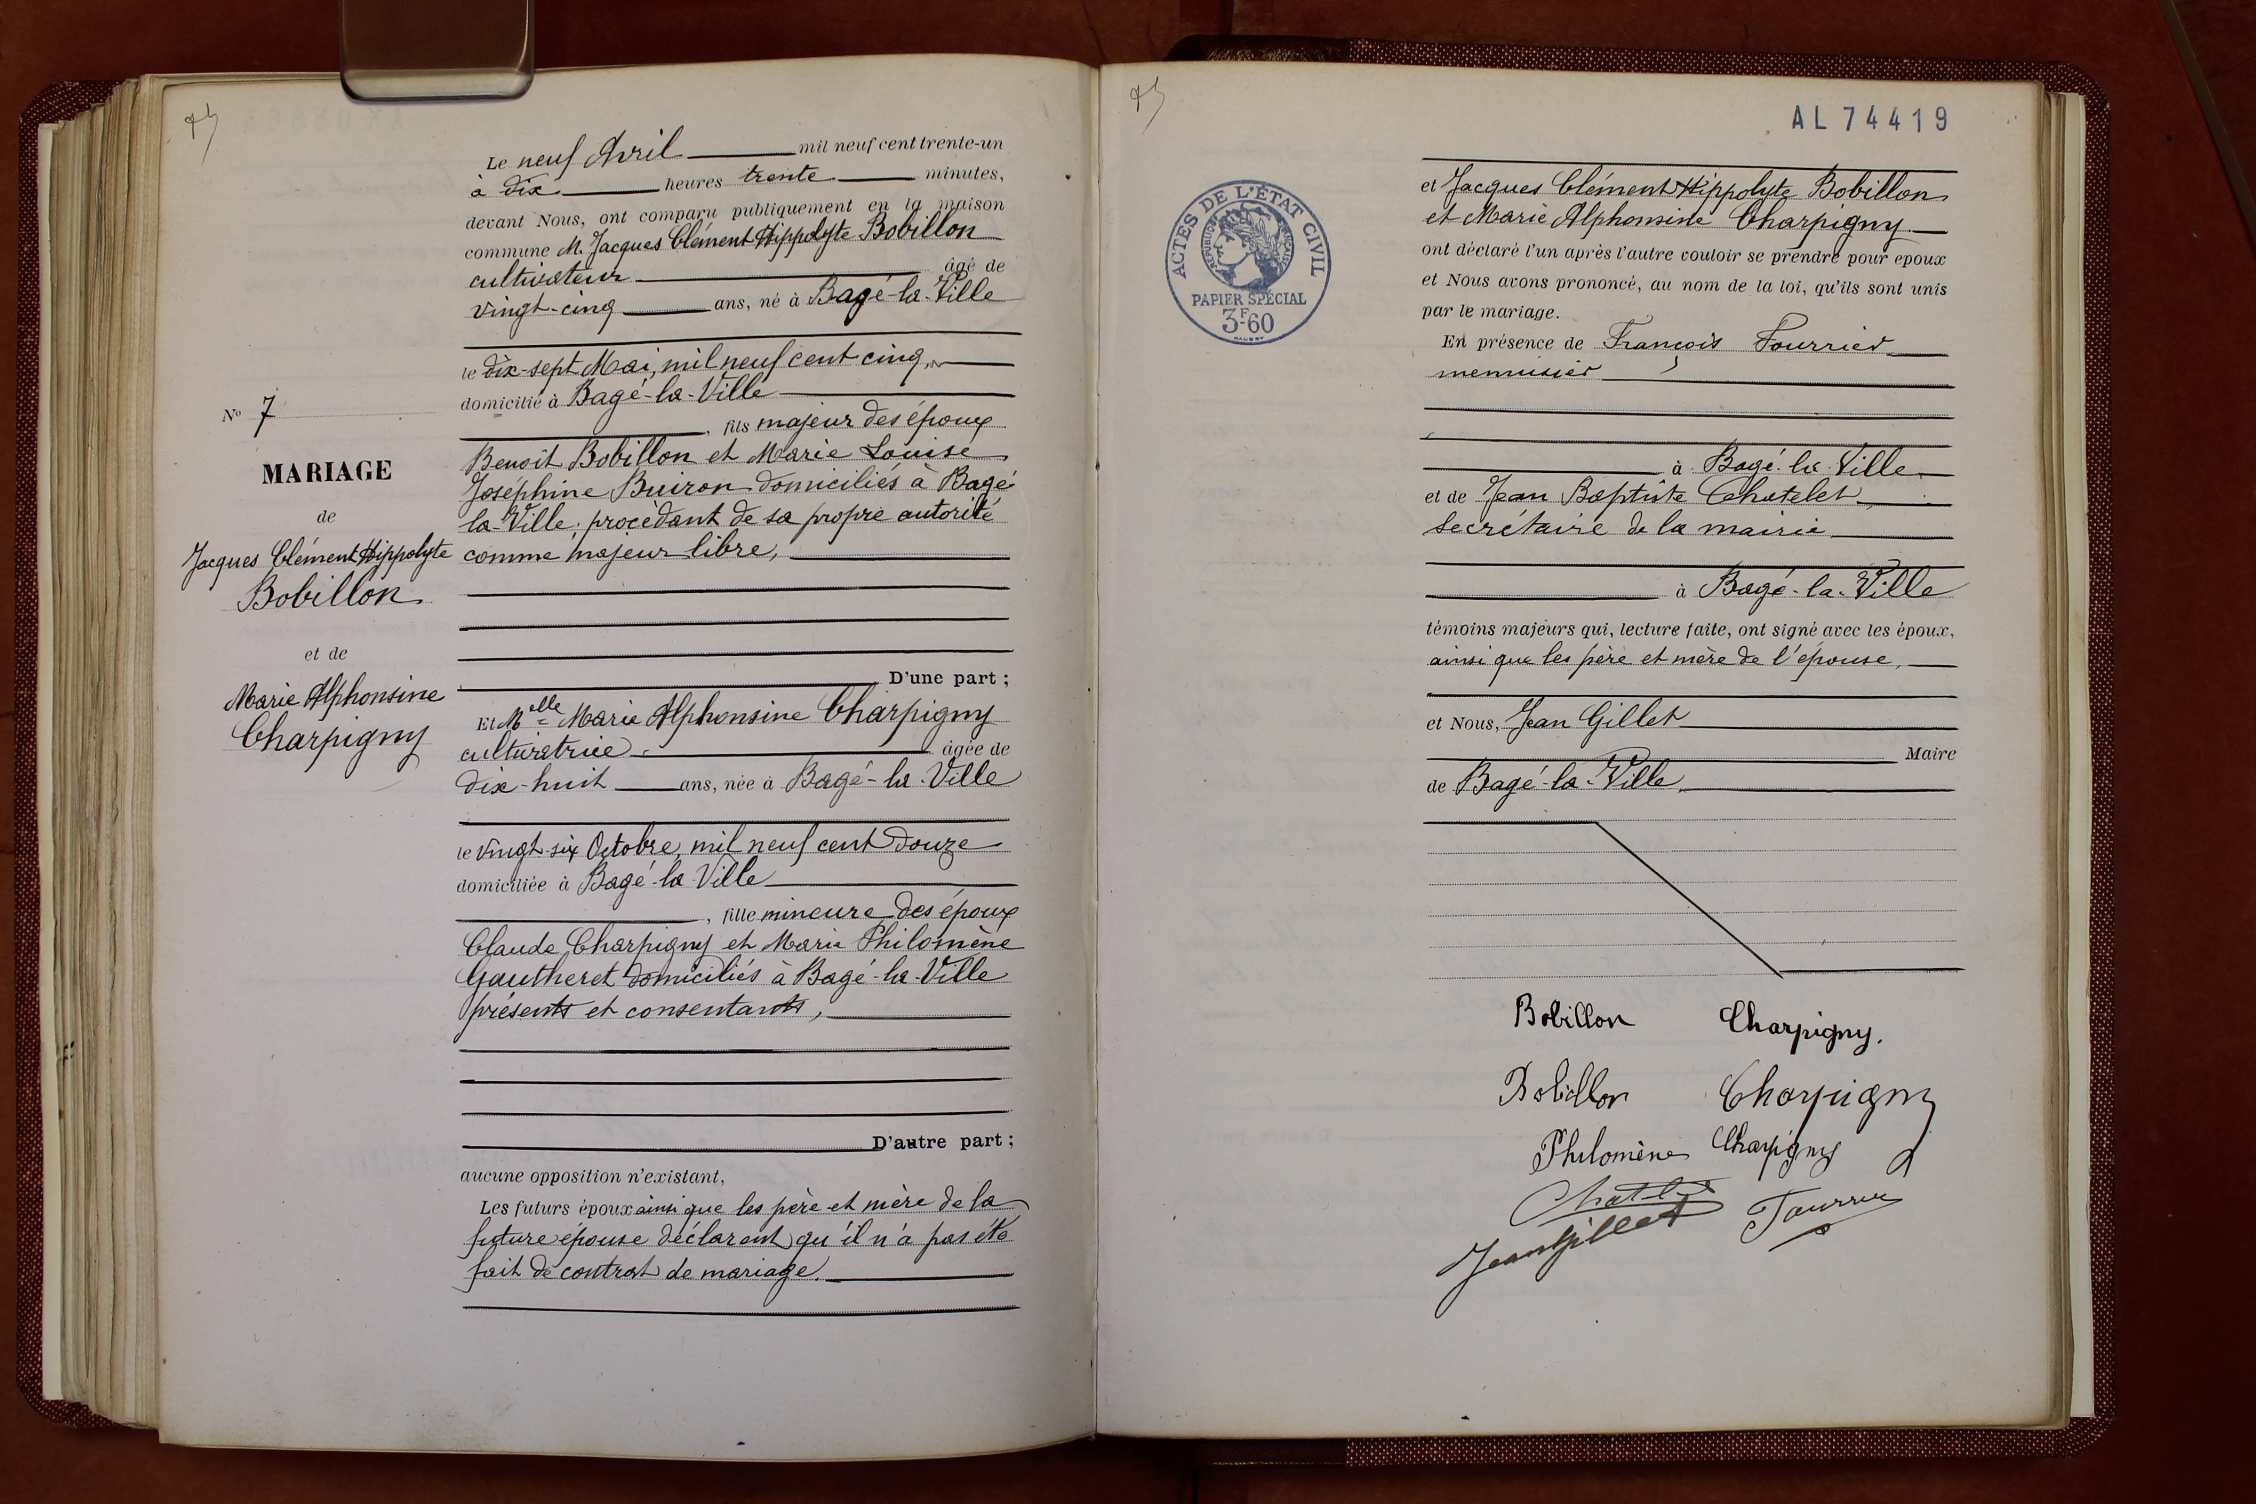 Le neuf Avril mil neuf cent trente-un
à dix heures trente minutes,
devant Nous, ont comparu publiquement en la maison
commune M. Jacques Clément Hippolyte Bobillon
cultivateur âgé de
vingt-cinq ans, né à Bagé-la-Ville
le dix-sept Mai, mil neuf cent cinq,
domicilié à Bagé-la-Ville
, fils majeur des époux
Benoit Bobillon et Marie Louise
Joséphine Buiron domiciliés à Bagé-
la-Ville; procédant de sa propre autorité
comme majeur libre,
D'une part ;
Et Melle Marie Alphonsine Charpigny
cultivatrice âgée de
dix-huit ans, née à Bagé-la-Ville
le vingt-six Octobre, mil neuf cent douze
domiciliée à Bagé-la-Ville
, fille mineure des époux
Claude Charpigny et Marie Philomène
Gautheret domiciliés à Bagé-la-Ville
présents et consentants,
D'autre part ;
aucune opposition n'existant,
Les futurs époux ainsi que les père et mère de la
future épouse déclarent qu'il n'a pas été
fait de contrat de mariage.
No 7
MARIAGE
de
Jacques Clément Hippolyte
Bobillon
et de
Marie Alphonsine
Charpigny
AL 74419
ACTES DE L'ÉTAT CIVIL
RÉPUBLIQUE FRANÇAISE
PAPIER SPÉCIAL
3F60
et Jacques Clément Hippolyte Bobillon
et Marie Alphonsine Charpigny
ont déclaré l'un après l'autre vouloir se prendre pour époux
et Nous avons prononcé, au nom de la loi, qu'ils sont unis
par le mariage.
En présence de François Fourrier
menuisier
à Bagé-la-Ville
et de Jean Baptiste Chatelet,
secrétaire de la mairie
à Bagé-la-Ville
témoins majeurs qui, lecture faite, ont signé avec les époux,
ainsi que les père et mère de l'épouse,
et Nous, Jean Gillet
Maire
de Bagé-la-Ville
Bobillon Charpigny.
Bobillon Charpigny
Philomène Charpigny
Jean Gillet